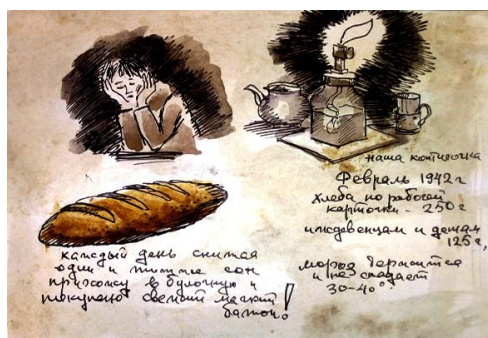 наша коптилочка
Февраль 1942 г
хлеба по рабочей
карточке - 250 г
иждевенцам и детям
125 г,
мороз держится
и не спадает
30-40°
каждый день снится
один и тотже сон
прихожу в булочную и
покупаю свежий мягкий
батон!